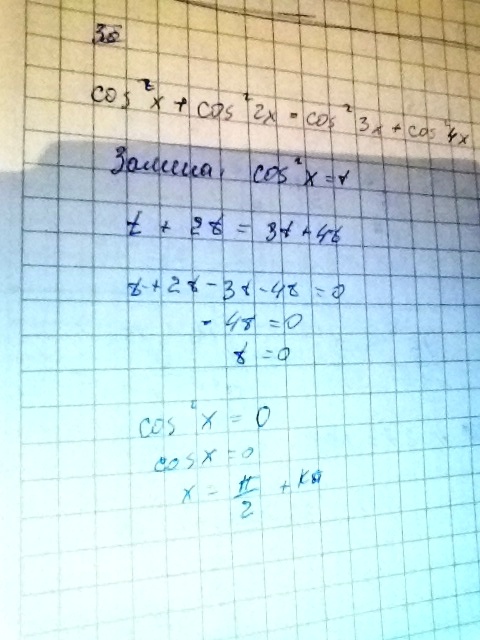 cos²x + cos²2x = cos²3x + cos²4x
Замена: cos²x = t
t + 2t = 3t + 4t
t + 2t - 3t - 4t = 0
- 4t = 0
t = 0
cos²x = 0
cos x = 0
x = π/2 + кπ